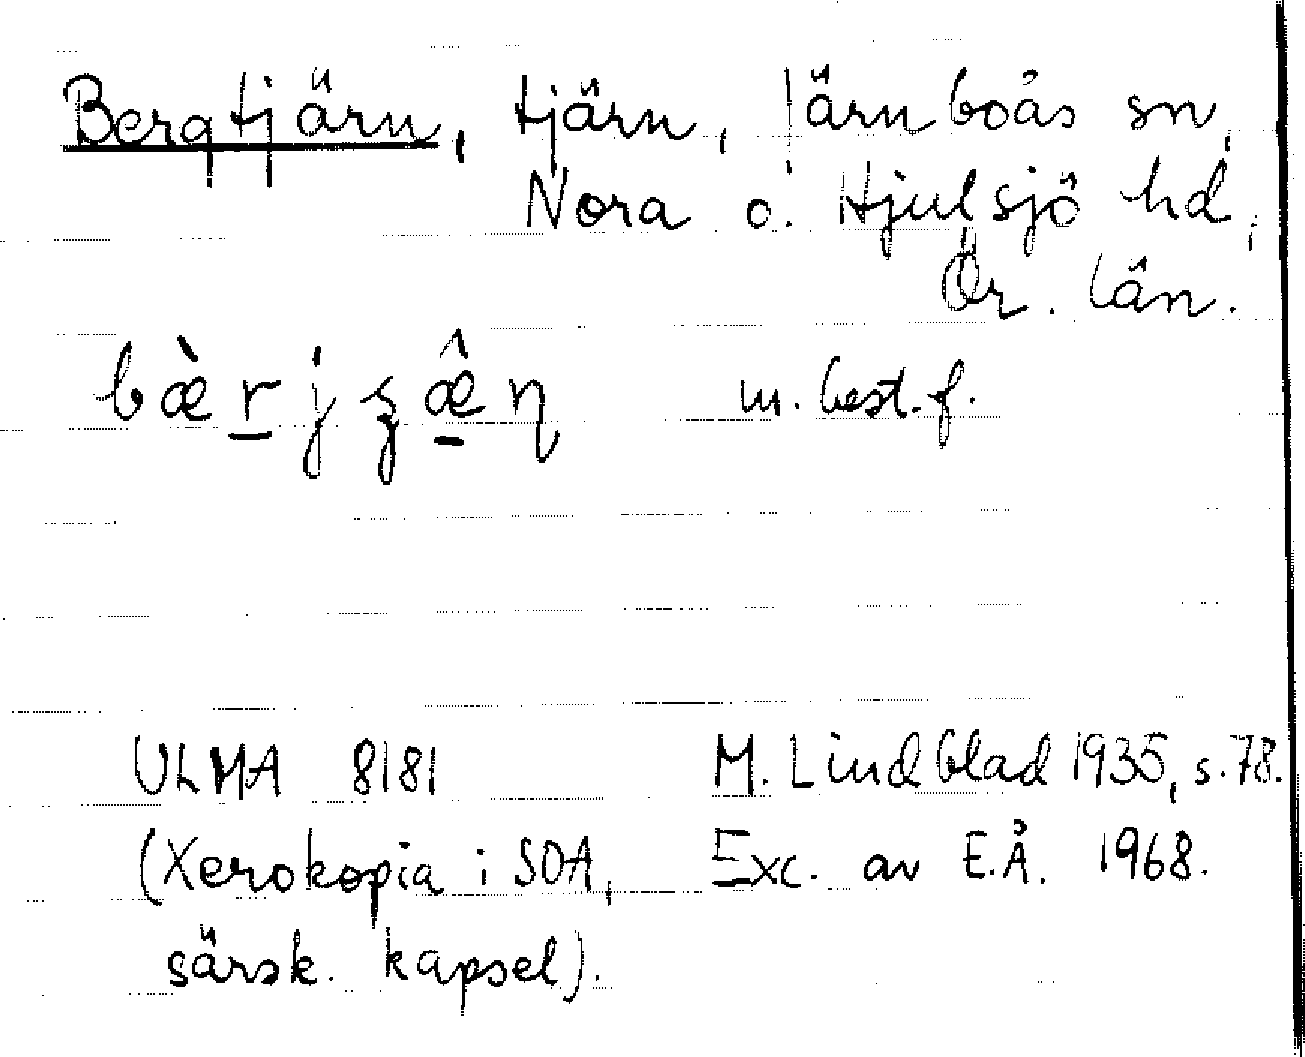 Bergtjärn, tjärn, Järnboås sn,
Nora o. Hjulsjö hd,
Ör. län.
bæ̀r̠jʂæ̠̂ɳ m. best. f.
ULMA 8181 M. Lindblad 1935, s. 78.
(Xerokopia i SOA, Exc. av E.Å. 1968.
särsk. kapsel).